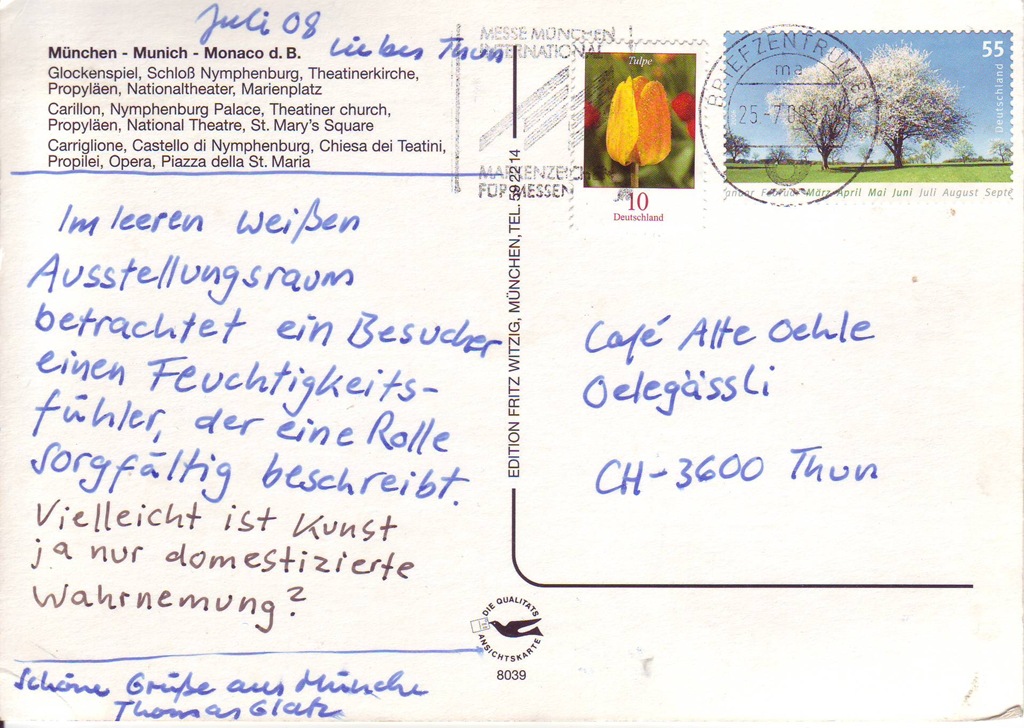 Juli 08
Liebes Thun
München - Munich - Monaco d. B.
Glockenspiel, Schloß Nymphenburg, Theatinerkirche,
Propyläen, Nationaltheater, Marienplatz
Carillon, Nymphenburg Palace, Theatiner church,
Propyläen, National Theatre, St. Mary's Square
Carriglione, Castello di Nymphenburg, Chiesa dei Teatini,
Propilei, Opera, Piazza della St. Maria
Im leeren weißen
Ausstellungsraum
betrachtet ein Besucher
einen Feuchtigkeits-
fühler, der eine Rolle
sorgfältig beschreibt.
Vielleicht ist Kunst
ja nur domestizierte
Wahrnemung?
Schöne Grüße aus Münche
Thomas Glatz
EDITION FRITZ WITZIG, MÜNCHEN, TEL. 59 22 14
DIE QUALITÄTS
ANSICHTSKARTE
8039
MESSE MÜNCHEN
INTERNATIONAL
MARKENZEICHEN
FÜR MESSEN
Tulpe
10
Deutschland
BRIEFZENTRUM
ma
25-7.08
55
Deutschland
März April Mai Juni Juli August Septe
Café Alte Oehle
Oelegässli
CH-3600 Thun